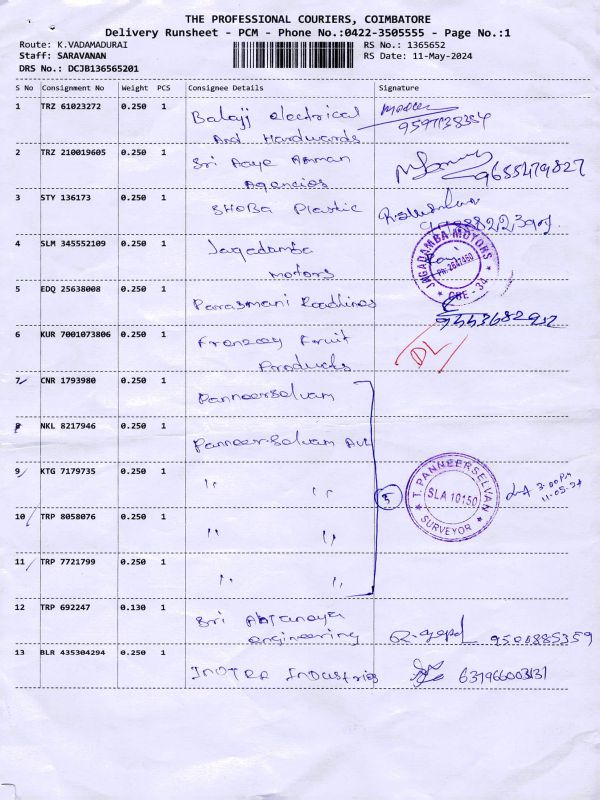 THE PROFESSIONAL COURIERS, COIMBATORE
Delivery Runsheet - PCM - Phone No.:0422-3505555 - Page No.:1
Route: K.VADAMADURAI
RS No.: 1365652
Staff: SARAVANAN
RS Date: 11-May-2024
DRS No.: DCJB136565201
S No Consignment No Weight PCS Consignee Details Signature
1 TRZ 61023272 0.250 1 Balaji electrical
And Hardwards
9597138354
2 TRZ 210019605 0.250 1 Sri Amman
Agencies
9655479827
3 STY 136173 0.250 1 SHOBA Plastic
4 SLM 345552109 0.250 1 Jagadamba
motors
JAGADAMBA MOTORS
CBE - 34
5 EDQ 25638008 0.250 1 Parasmani Roadlines
6 KUR 7001073806 0.250 1 Fruit
Products
DL
7 CNR 1793980 0.250 1 Panneerselvam
8 NKL 8217946 0.250 1 Panneerselvam
9 KTG 7179735 0.250 1 " "
5
T. PANNEERSELVAN
SLA 10150
SURVEYOR
3:00PM
11-05-24
10 TRP 8058076 0.250 1 " "
11 TRP 7721799 0.250 1 " "
12 TRP 692247 0.130 1 Sri
engineering
R. gopal 9506885359
13 BLR 435304294 0.250 1 Industries